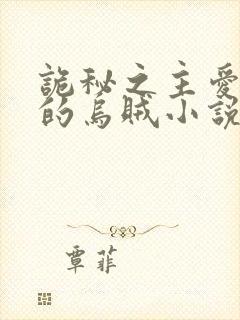 詭秘之主愛
的烏賊小說
覃菲